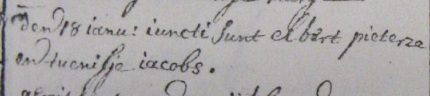 den 18 ianu: iuncti sunt elbert pieterze
en tuenisje iacobs.